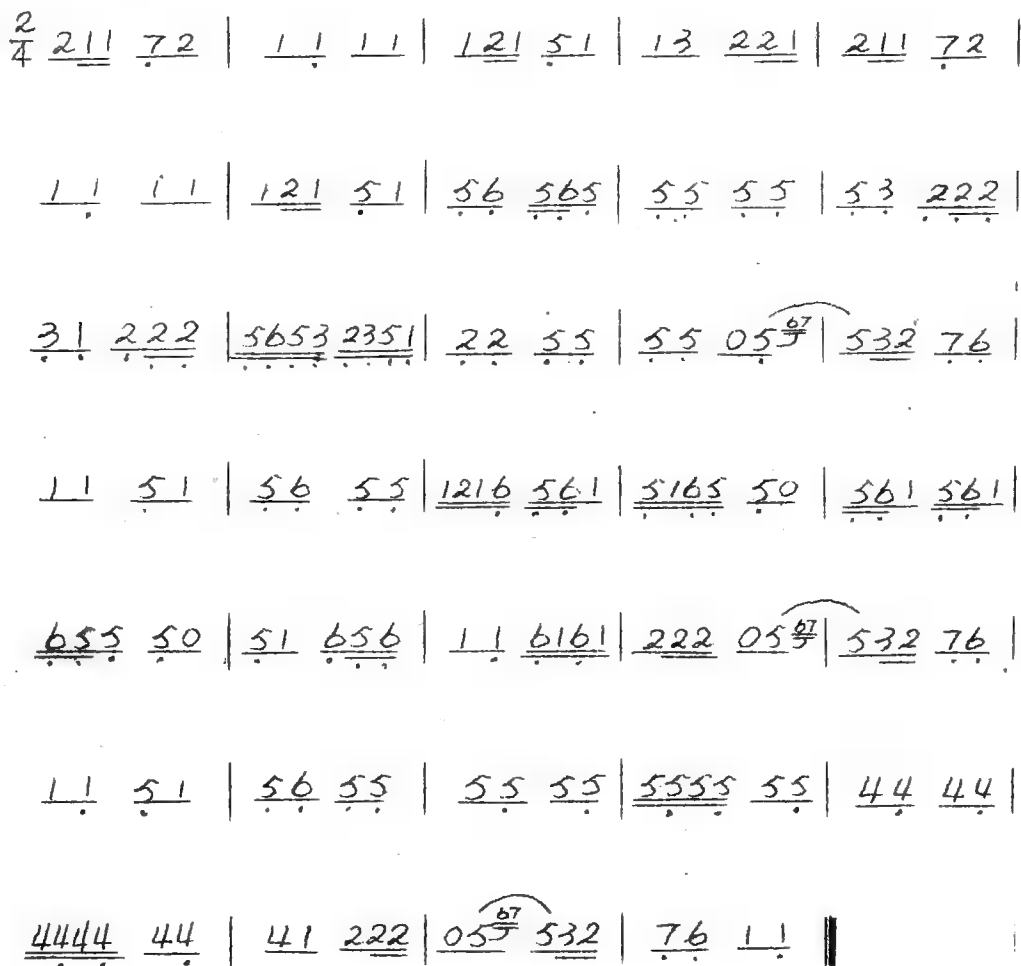 2/4 211 72 | 11 11 | 121 51 | 13 221 | 211 72 |
11 11 | 121 51 | 56 565 | 55 55 | 53 222 |
31 222 | 5653 2351 | 22 55 | 55 05 67 | 532 76 |
11 51 | 56 55 | 1216 561 | 5165 50 | 561 561 |
655 50 | 51 656 | 11 6161 | 222 05 67 | 532 76 |
11 51 | 56 55 | 55 55 | 5555 55 | 44 44 |
4444 44 | 41 222 | 05 67 532 | 76 11 ‖